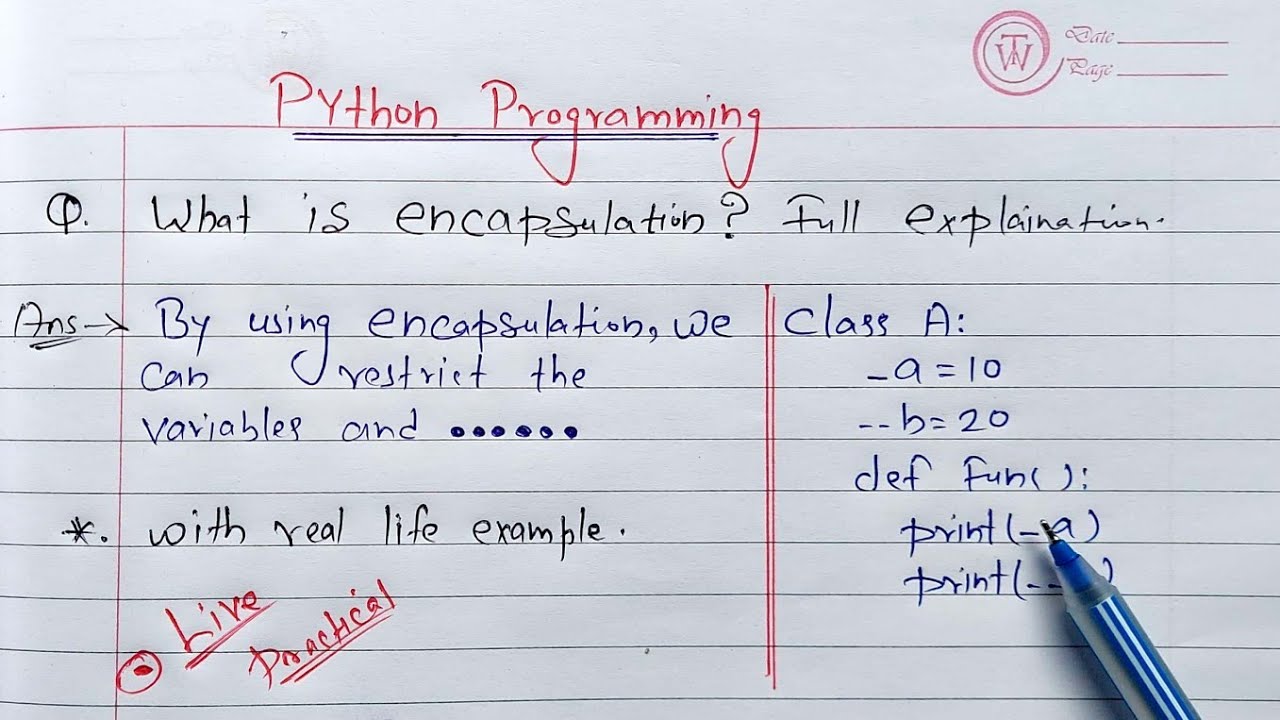 Date
Page
Python Programming
Q. What is encapsulation? Full explaination.
Ans→ By using encapsulation, we
can restrict the
variables and ......
*. with real life example.
Live
Practical
Class A:
_a = 10
__b = 20
def Fun():
print(_a)
print(__